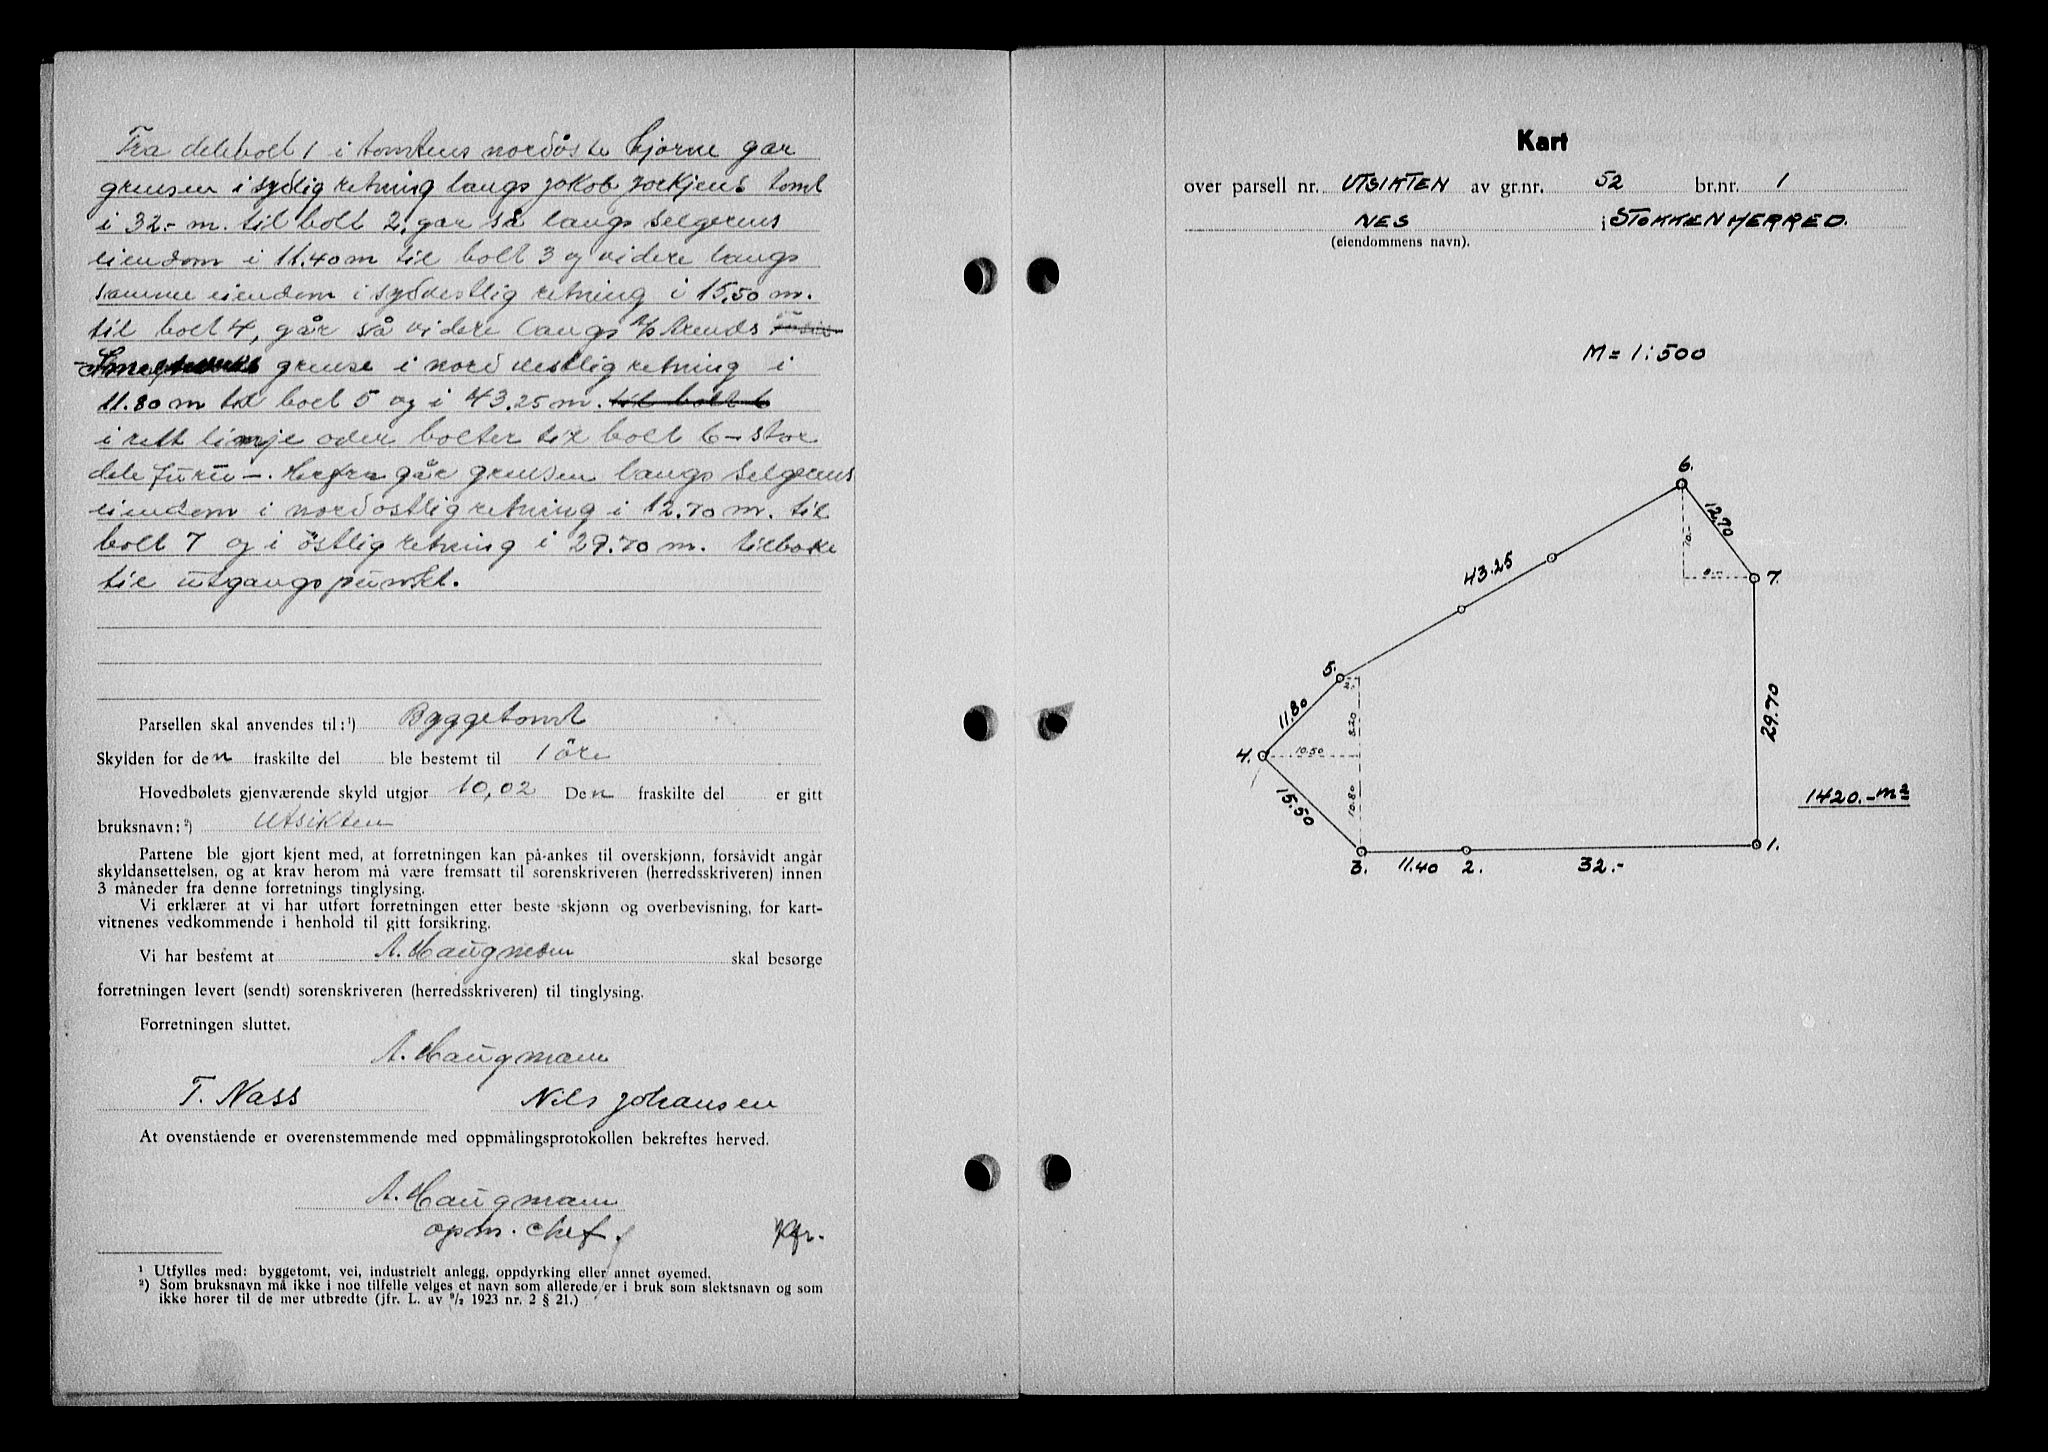 Fra delebolt 1 i tomtens nordöste hjörne går
grensen i sydlig retning langs Jakob tomt
i 32.- m. til bolt 2, går så langs selgerens
eiendom i 11.40 m til bolt 3 og videre langs
samme eiendom i sydvestlig retning i 15.50 m.
til bolt 4, går så videre langs A/S Arends
Smelteverks grense i nordvestlig retning i
11.80 m til bolt 5 og i 43.25 m. til bolt 6
i rett linje over bolter til bolt 6 - stor
dele furu -. Herfra går grensen langs selgerens
eiendom i nordostlig retning i 12.70 m. til
bolt 7 og i östlig retning i 29.70 m. tilbake
til utgangspunkt.
Parsellen skal anvendes til: ¹) Byggetomt
Skylden for den fraskilte del ble bestemt til 1 öre
Hovedbølets gjenværende skyld utgjør 10,02 Den fraskilte del er gitt
bruksnavn: ²) Utsikten
Partene ble gjort kjent med, at forretningen kan på-ankes til overskjønn, forsåvidt angår
skyldansettelsen, og at krav herom må være fremsatt til sorenskriveren (herredsskriveren) innen
3 måneder fra denne forretnings tinglysing.
Vi erklærer at vi har utført forretningen etter beste skjønn og overbevisning, for kart-
vitnenes vedkommende i henhold til gitt forsikring.
Vi har bestemt at A. Haugmann skal besørge
forretningen levert (sendt) sorenskriveren (herredsskriveren) til tinglysing.
Forretningen sluttet.
A. Haugmann
T. Nass Nils Johansen
At ovenstående er overenstemmende med oppmålingsprotokollen bekreftes herved.
A. Haugmann
opm. chef.
¹ Utfylles med: byggetomt, vei, industrielt anlegg, oppdyrking eller annet øyemed.
²) Som bruksnavn må ikke i noe tilfelle velges et navn som allerede er i bruk som slektsnavn og som
ikke hører til de mer utbredte (jfr. L. av ⁹/₂ 1923 nr. 2 § 21.)
Kart
over parsell nr. UTSIKTEN av gr.nr. 52 br.nr. 1
NES i STOKKEN HERRED.
(eiendommens navn).
M = 1:500
6.
12.70
10.-
8.-
7.
43.25
5.
2.-
11.80
8.20
29.70
4.
10.50
10.80
15.50
1420.- m²
3. 11.40 2. 32.- 1.